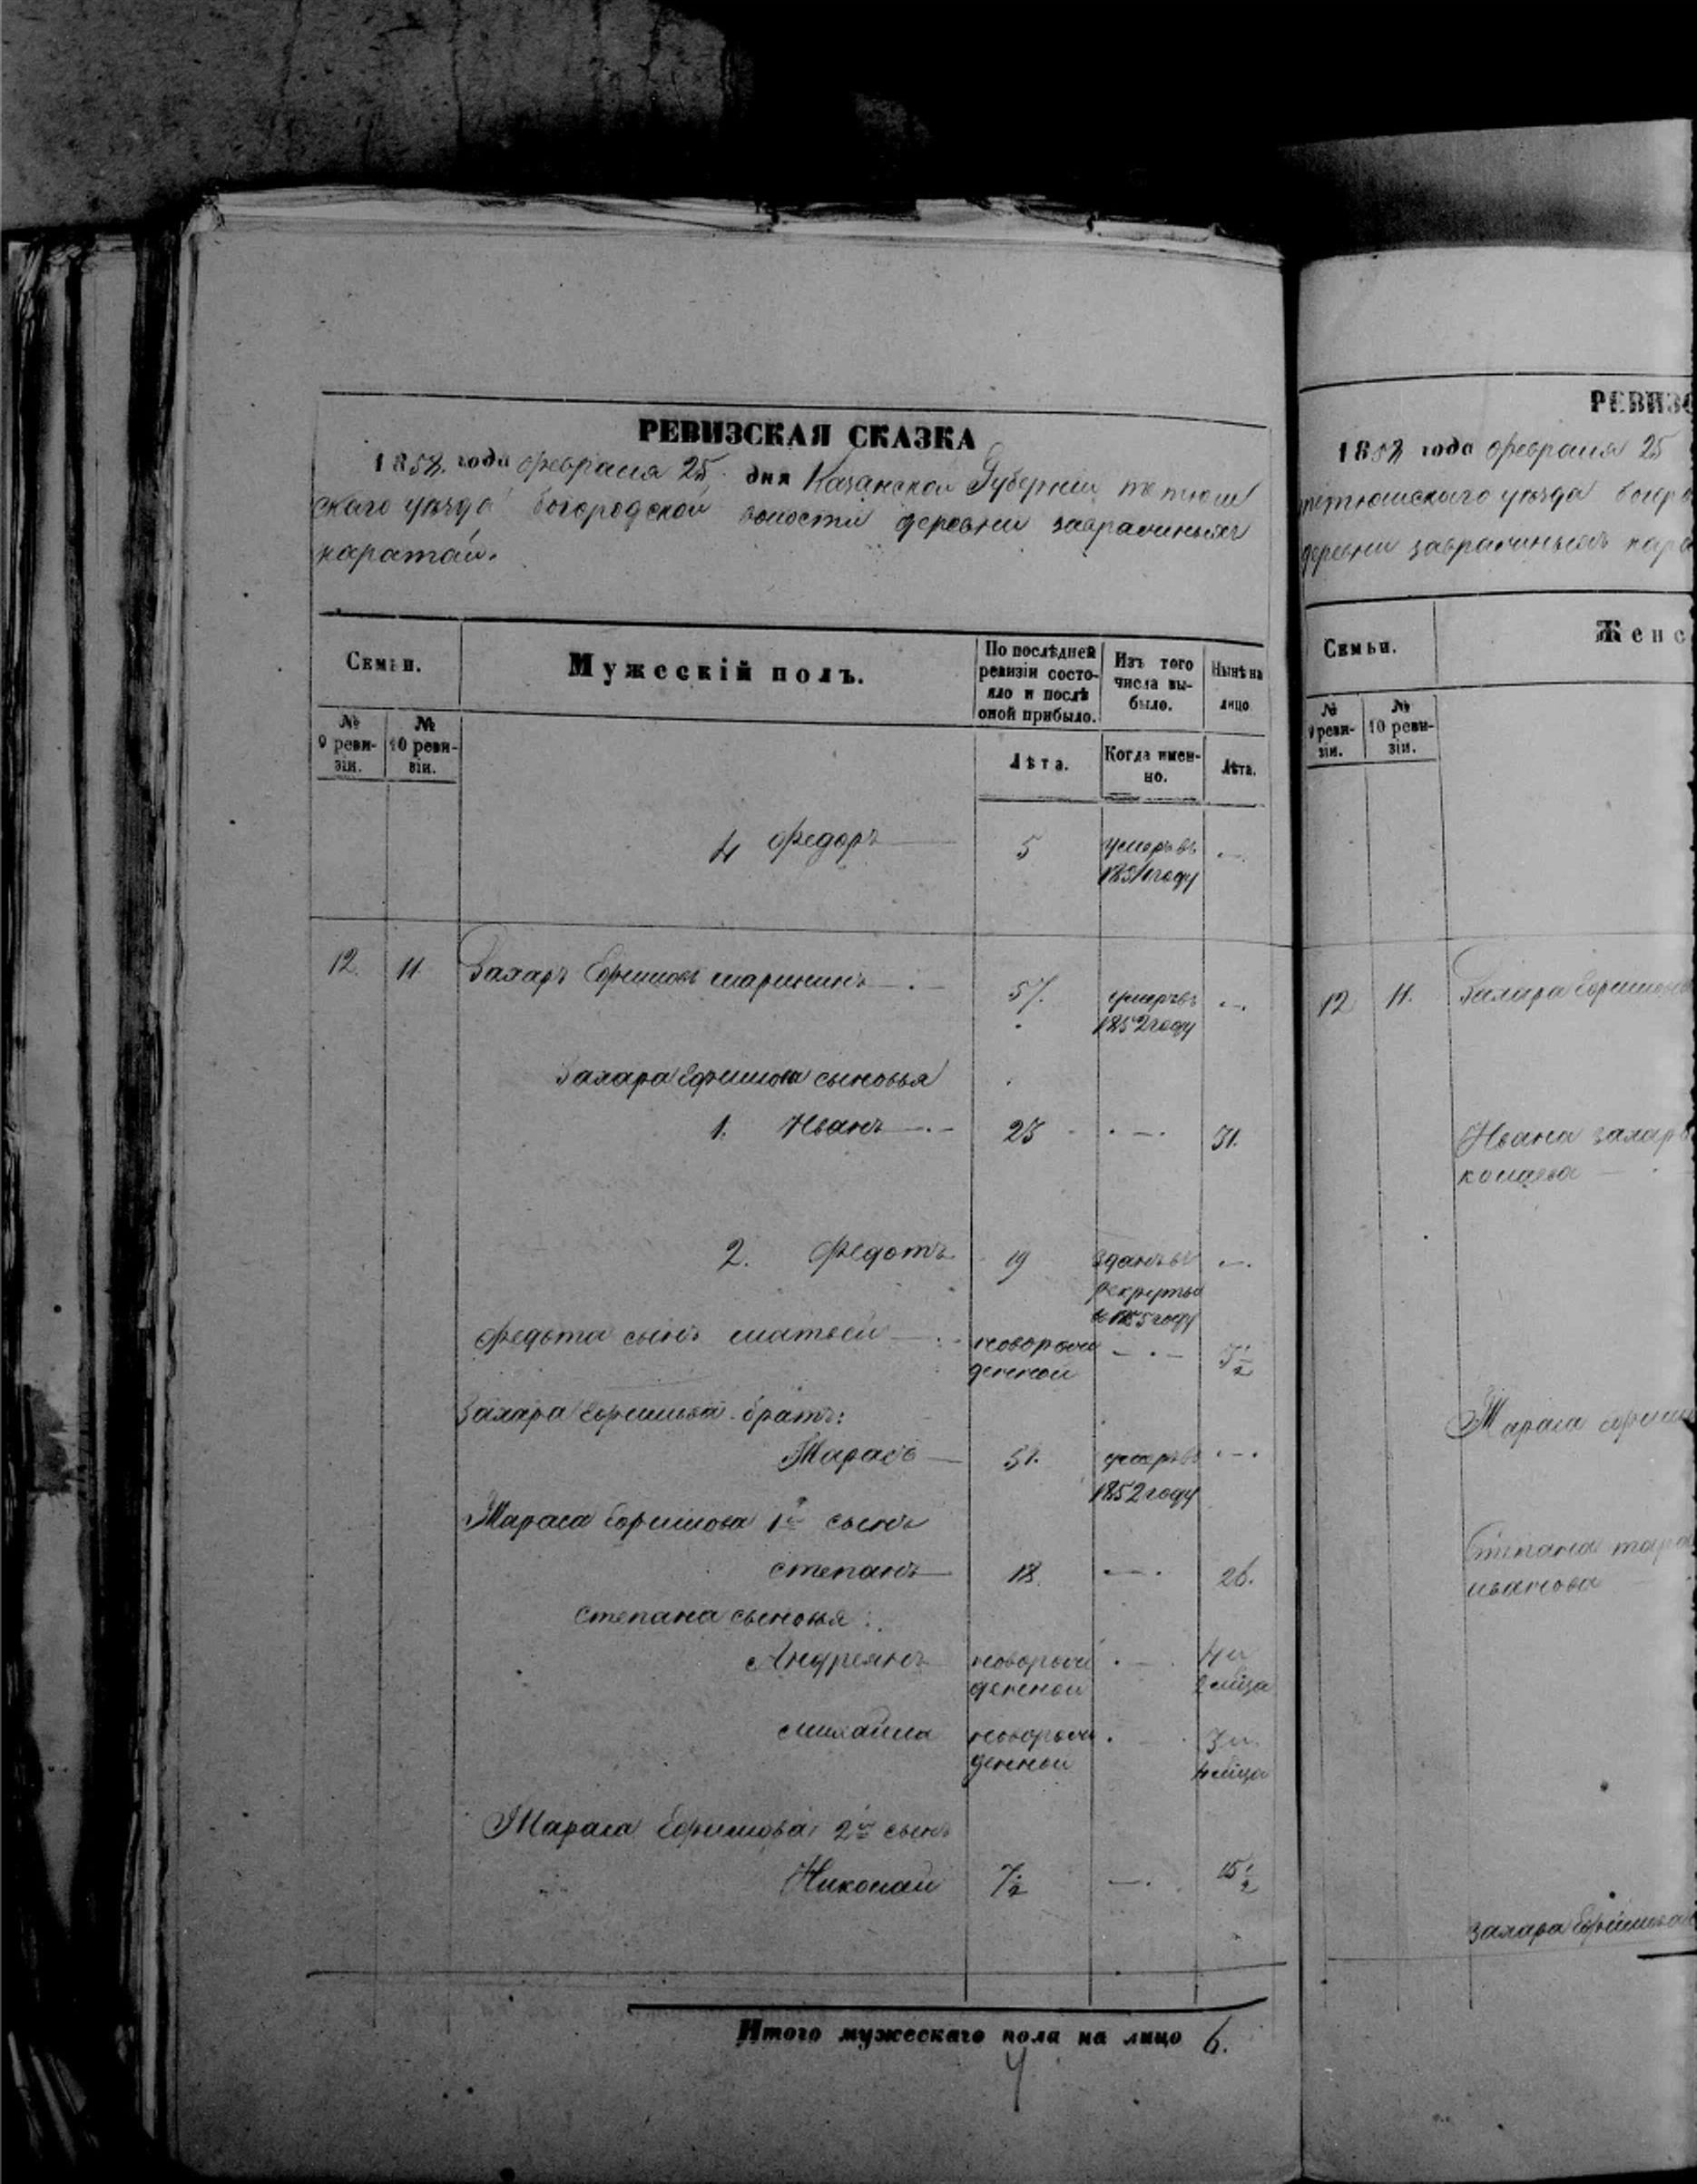 РЕВИЗСКАЯ СКАЗКА
1858 года февраля 25 дня Казанской Губернии тетюш
скаго уезда богородской волости деревни заовражныхъ
каратай.
Семьи.
Мужескій полъ.
По послѣдней ревизіи состояло и послѣ оной прибыло.
Изъ того числа выбыло.
Нынѣ на лицо
№ 9 ревизіи.
№ 10 ревизіи.
Лѣта.
Когда именно.
Лѣта.
4 Федоръ 5 умеръ въ
году
12. 11. Захаръ Ефимовъ 57. умеръ въ
1852 году
Захара Ефимова сыновья
1. Иванъ 23 31.
2. Федотъ 19 зданъ въ
рекруты
в 1855 году
Федота сынъ матвей новорож
денной 3 1/2
Захара Ефимова братъ:
Тарасъ 51. умеръ въ
1852 году
Тараса Ефимова 1й сынъ
степанъ 18. 26.
степана сыновья:
Андреянъ новорож 4 и
денной 2 м̃ца
михайла новорож 3 и
денной 4 м̃ца
Тараса Ефимова 2й сынъ
Николай 7 1/2 15 1/2
Итого мужескаго пола на лицо 6.
РЕВИЗС
1858 года февраля 25
тетюшскаго уезда богор
деревни заовражныхъ кара
Семьи.
Женс
№ 9 ревизіи.
№ 10 ревизіи.
12 11. Захара Ефимова
Ивана захаро
Тараса Ефимо
Степана тара
иванова
Захара Ефимова